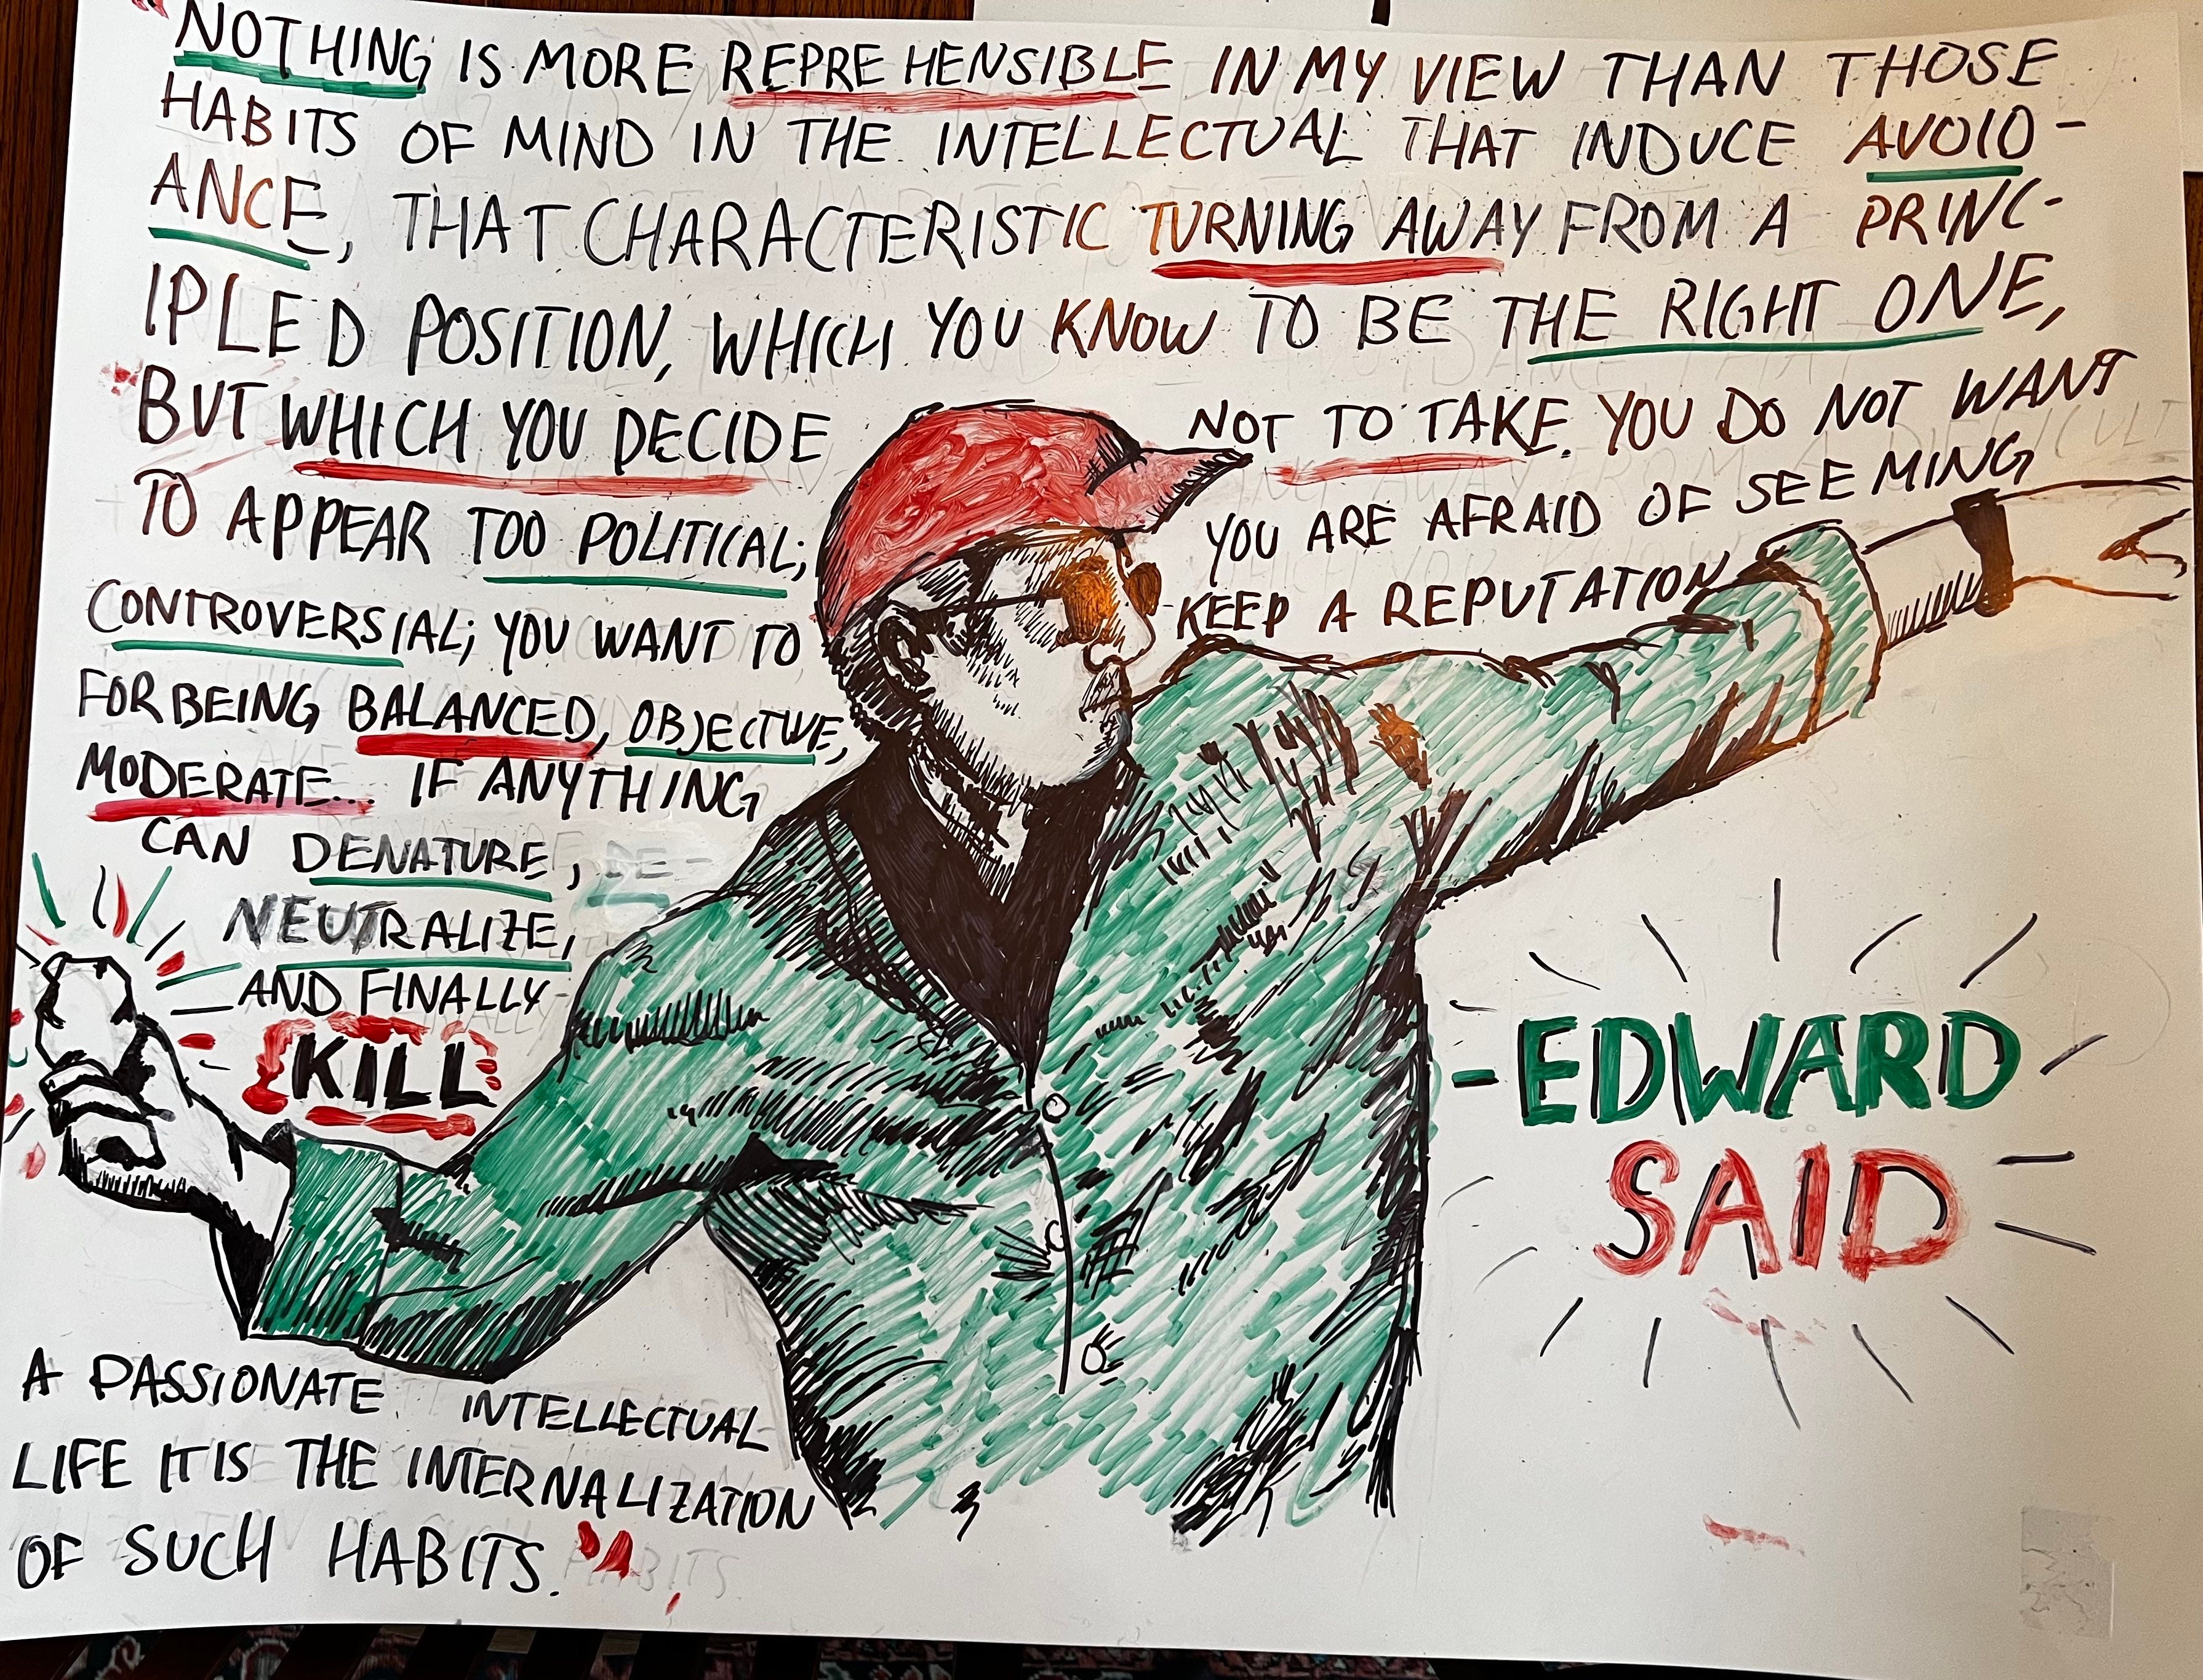 "NOTHING IS MORE REPREHENSIBLE IN MY VIEW THAN THOSE
HABITS OF MIND IN THE INTELLECTUAL THAT INDUCE AVOID-
ANCE, THAT CHARACTERISTIC TURNING AWAY FROM A PRINC-
IPLED POSITION, WHICH YOU KNOW TO BE THE RIGHT ONE,
BUT WHICH YOU DECIDE NOT TO TAKE. YOU DO NOT WANT
TO APPEAR TOO POLITICAL; YOU ARE AFRAID OF SEEMING
CONTROVERSIAL; YOU WANT TO KEEP A REPUTATION
FOR BEING BALANCED, OBJECTIVE,
MODERATE... IF ANYTHING
CAN DENATURE, DE-
NEUTRALIZE,
AND FINALLY
KILL
A PASSIONATE INTELLECTUAL
LIFE IT IS THE INTERNALIZATION
OF SUCH HABITS."
-EDWARD
SAID